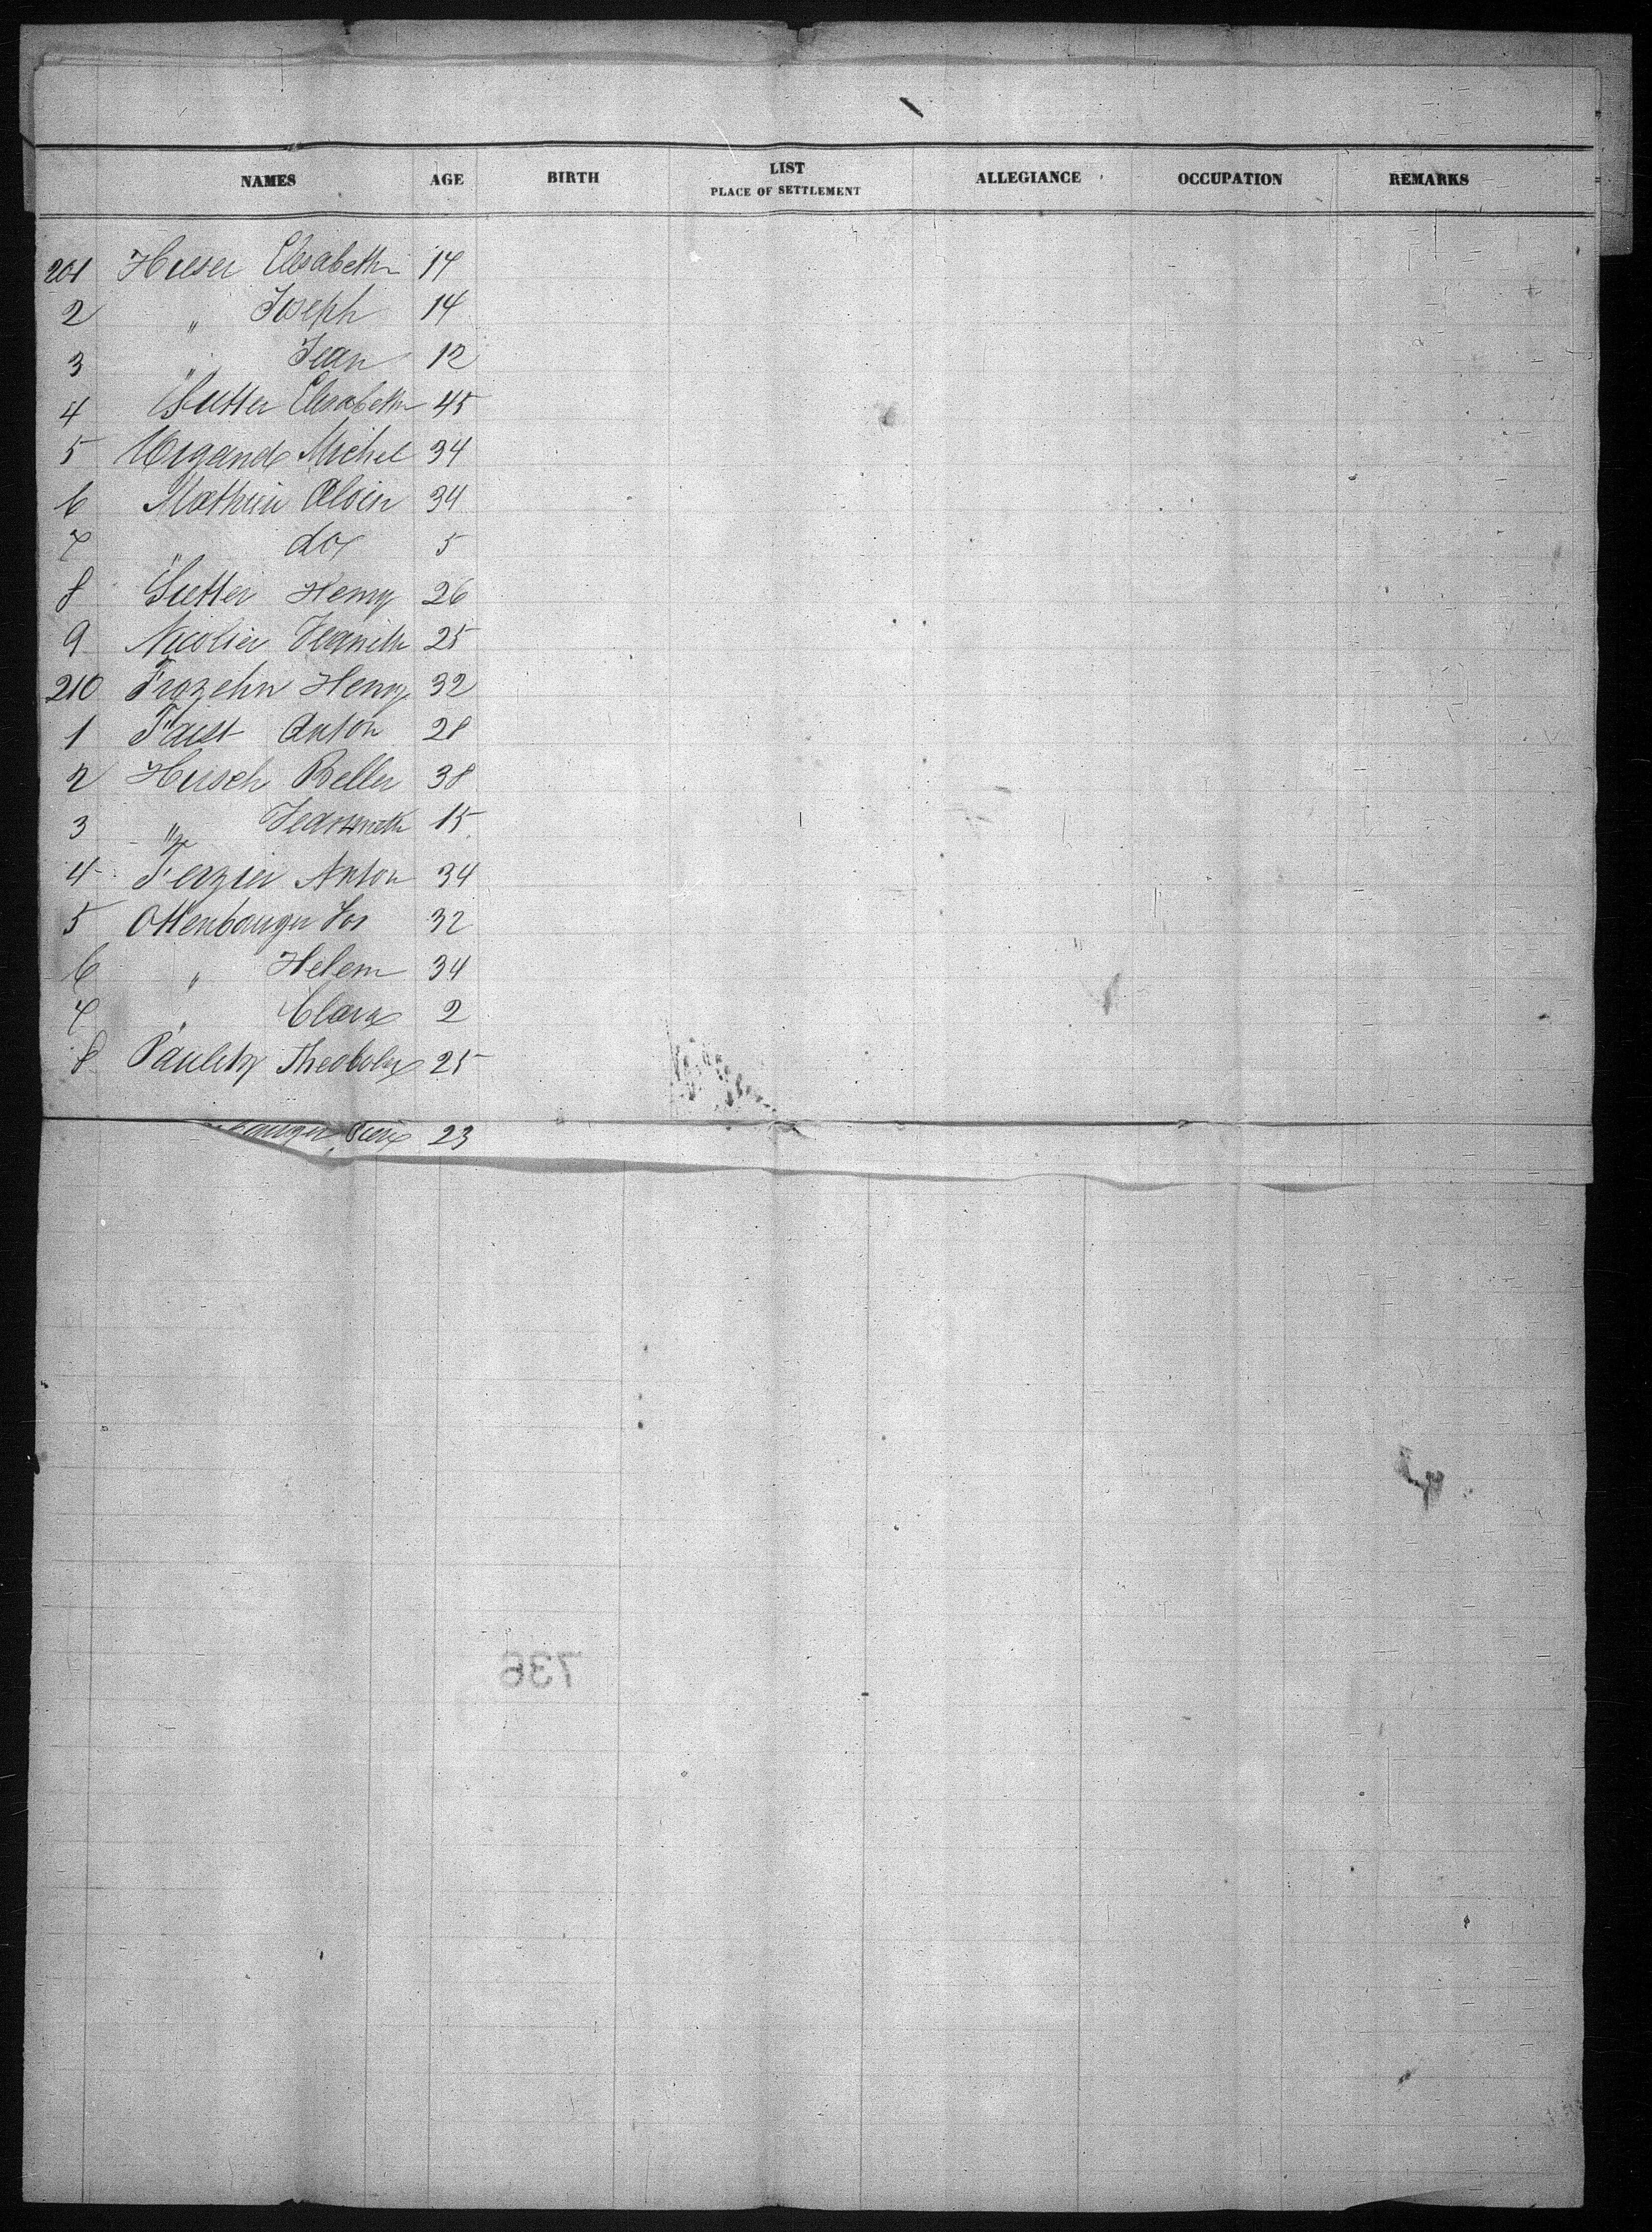 NAMES AGE BIRTH LIST PLACE OF SETTLEMENT ALLEGIANCE OCCUPATION REMARKS
201 Huser Elisabeth 14
2 " Joseph 14
3 " Jean 12
4 Sutter Elisabeth 45
5 Wigand Michel 34
6 Mathieu Alvin 34
7 " do 5
8 Sutter Henry 26
9 Nicolier 25
210 Frozehn Henry 32
1 Faust Anton 28
2 Hirsch Beller 38
3 " 15
4 Anton 34
5 Ottenbauger Jos 32
6 " Helem 34
7 " Clara 2
8 Theobold 25
23
736